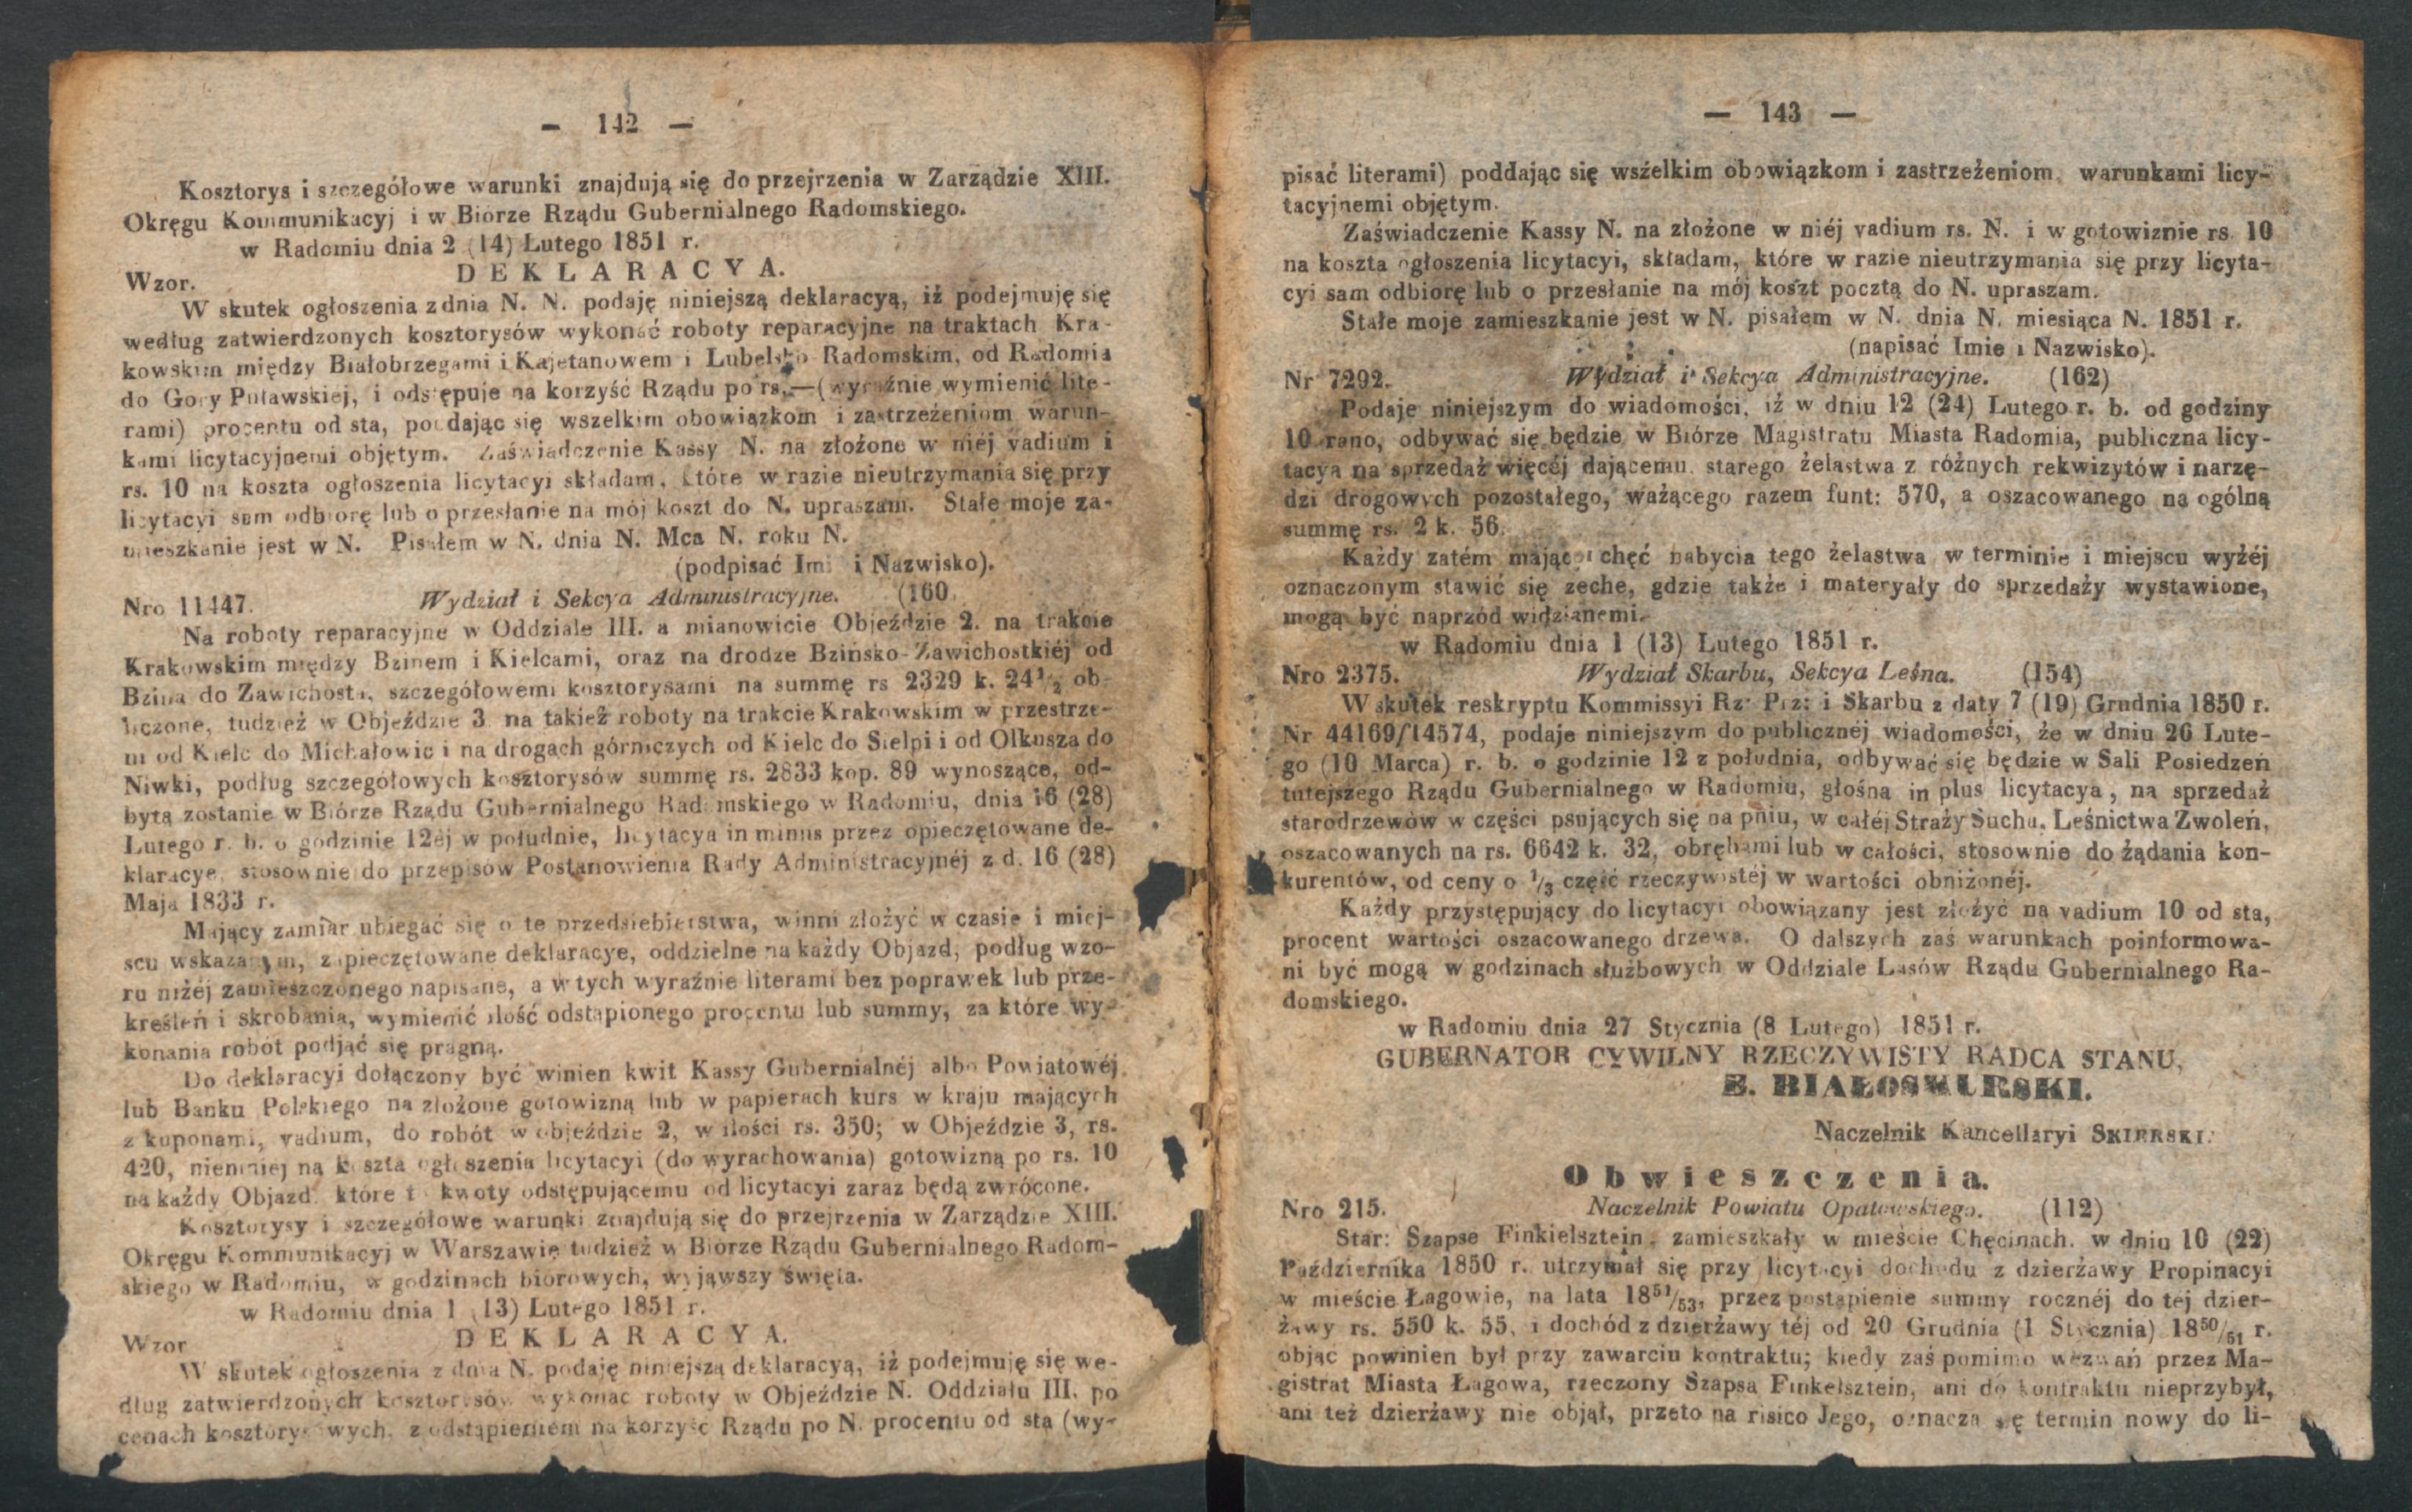 — 142 —
Kosztorys i szczegółowe warunki znajdują się do przejrzenia w Zarządzie XIII.
Okręgu Kommunikacyj i w Biórze Rządu Gubernialnego Radomskiego.
w Radomiu dnia 2 (14) Lutego 1851 r.
Wzor. DEKLARACYA.
W skutek ogłoszenia z dnia N. N. podaję niniejszą deklaracyą, iż podejmuję się
według zatwierdzonych kosztorysów wykonać roboty reparacyjne na traktach Kra-
kowskim między Białobrzegami i Kajetanowem i Lubelsko Radomskim, od Radomia
do Gory Puławskiej, i odstępuje na korzyść Rządu po rs.—(wyraźnie wymienić lite-
rami) procentu od sta, poddając się wszelkim obowiązkom i zastrzeżeniom warun-
kami licytacyjnemi objętym. Zaświadczenie Kassy N. na złożone w niéj vadium i
rs. 10 na koszta ogłoszenia licytacyi składam, które w razie nieutrzymania się przy
licytacyi sam odbiorę lub o przesłanie na mój koszt do N. upraszam. Stałe moje za-
mieszkanie jest w N. Pisałem w N. dnia N. Mca N. roku N.
(podpisać Imi i Nazwisko).
Nro 11447. Wydział i Sekcya Administracyjne. (160
Na roboty reparacyjne w Oddziale III. a mianowicie Objeździe 2. na trakcie
Krakowskim między Bzinem i Kielcami, oraz na drodze Bzińsko-Zawichostkiéj od
Bzina do Zawichosta, szczegółowemi kosztorysami na summę rs 2329 k. 24½ ob-
liczone, tudzież w Objeździe 3 na takież roboty na trakcie Krakowskim w przestrze-
ni od Kielc do Michałowic i na drogach górniczych od Kielc do Sielpi i od Olkusza do
Niwki, podług szczegółowych kosztorysów summę rs. 2833 kop. 89 wynoszące, od-
bytą zostanie w Biórze Rządu Gubernialnego Radomskiego w Radomiu, dnia 16 (28)
Lutego r. b. o godzinie 12éj w południe, licytacya in minus przez opieczętowane de-
klaracye, stosownie do przepisów Postanowienia Rady Administracyjnéj z d. 16 (28)
Maja 1833 r.
Mający zamiar ubiegać się o te przedsiebierstwa, winni złożyć w czasie i miej-
scu wskazanym, zapieczętowane deklaracye, oddzielne na każdy Objazd, podług wzo-
ru niżéj zamieszczonego napisane, a w tych wyraźnie literami bez poprawek lub prze-
kreśleń i skrobania, wymienić ilość odstąpionego procentu lub summy, za które wy-
konania robót podjąć się pragną.
Do deklaracyi dołączony być winien kwit Kassy Gubernialnéj albo Powiatowéj
lub Banku Polskiego na złożone gotowizną lub w papierach kurs w kraju mających
z kuponami, vadium, do robót w objeździe 2, w ilości rs. 350; w Objeździe 3, rs.
420, niemniej na koszta ogłoszenia licytacyi (do wyrachowania) gotowizną po rs. 10
na każdy Objazd, które t kwoty odstępującemu od licytacyi zaraz będą zwrócone.
Kosztorysy i szczegółowe warunki znajdują się do przejrzenia w Zarządzie XIII.
Okręgu Kommunikacyj w Warszawie tudzież w Biórze Rządu Gubernialnego Radom-
skiego w Radomiu, w godzinach biorowych, wyjąwszy święta.
w Radomiu dnia 1 (13) Lutego 1851 r.
Wzor DEKLARACYA.
W skutek ogłoszenia z dnia N. podaję niniejszą deklaracyą, iż podejmuję się we-
dług zatwierdzonych kosztorysów wykonać roboty w Objeździe N. Oddziału III. po
cenach kosztorysowych, z odstąpieniem na korzyść Rządu po N. procentu od sta (wy-
— 143 —
pisać literami) poddając się wszelkim obowiązkom i zastrzeżeniom, warunkami licy-
tacyjnemi objętym.
Zaświadczenie Kassy N. na złożone w niéj vadium rs. N. i w gotowiznie rs. 10
na koszta ogłoszenia licytacyi, składam, które w razie nieutrzymania się przy licyta-
cyi sam odbiorę lub o przesłanie na mój koszt pocztą do N. upraszam.
Stałe moje zamieszkanie jest w N. pisałem w N. dnia N. miesiąca N. 1851 r.
(napisać Imie i Nazwisko).
Nr 7292. Wydział i Sekcya Administracyjne. (162)
Podaje niniejszym do wiadomości, iż w dniu 12 (24) Lutego r. b. od godziny
10 rano, odbywać się będzie w Biórze Magistratu Miasta Radomia, publiczna licy-
tacya na sprzedaż więcéj dającemu, starego żelastwa z różnych rekwizytów i narzę-
dzi drogowych pozostałego, ważącego razem funt: 570, a oszacowanego na ogólną
summę rs. 2 k. 56.
Każdy zatém mający chęć nabycia tego żelastwa w terminie i miejscu wyżéj
oznaczonym stawić się zeche, gdzie także i materyały do sprzedaży wystawione,
mogą być naprzód widzianemi.
w Radomiu dnia 1 (13) Lutego 1851 r.
Nro 2375. Wydział Skarbu, Sekcya Leśna. (154)
W skutek reskryptu Kommissyi Rz: Prz: i Skarbu z daty 7 (19) Grudnia 1850 r.
Nr 44169/14574, podaje niniejszym do publicznéj wiadomości, że w dniu 26 Lute-
go (10 Marca) r. b. o godzinie 12 z południa, odbywać się będzie w Sali Posiedzeń
tutejszego Rządu Gubernialnego w Radomiu, głośna in plus licytacya, na sprzedaż
starodrzewów w części psujących się na pniu, w całéj Straży Sucha, Leśnictwa Zwoleń,
oszacowanych na rs. 6642 k. 32, obrębami lub w całości, stosownie do żądania kon-
kurentów, od ceny o ⅓ część rzeczywistéj w wartości obniżonéj.
Każdy przystępujący do licytacyi obowiązany jest złożyć na vadium 10 od sta,
procent wartości oszacowanego drzewa. O dalszych zaś warunkach poinformowa-
ni być mogą w godzinach służbowych w Oddziale Lasów Rządu Gubernialnego Ra-
domskiego.
w Radomiu dnia 27 Stycznia (8 Lutego) 1851 r.
GUBERNATOR CYWILNY RZECZYWISTY RADCA STANU,
E. BIAŁOSKURSKI.
Naczelnik Kancellaryi SKIERSKI.
Obwieszczenia.
Nro 215. Naczelnik Powiatu Opatowskiego. (112)
Star: Szapse Finkielsztein, zamieszkały w mieście Chęcinach, w dniu 10 (22)
Października 1850 r. utrzymał się przy licytacyi dochodu z dzierżawy Propinacyi
w mieście Łagowie, na lata 18⁵¹/₅₃, przez postąpienie summy rocznéj do tej dzier-
żawy rs. 550 k. 55, i dochód z dzierżawy téj od 20 Grudnia (1 Stycznia) 18⁵⁰/₅₁ r.
objąć powinien był przy zawarciu kontraktu; kiedy zaś pomimo wezwań przez Ma-
gistrat Miasta Łagowa, rzeczony Szapsa Finkelsztein, ani do kontraktu nieprzybył,
ani też dzierżawy nie objął, przeto na risico Jego, oznacza się termin nowy do li-